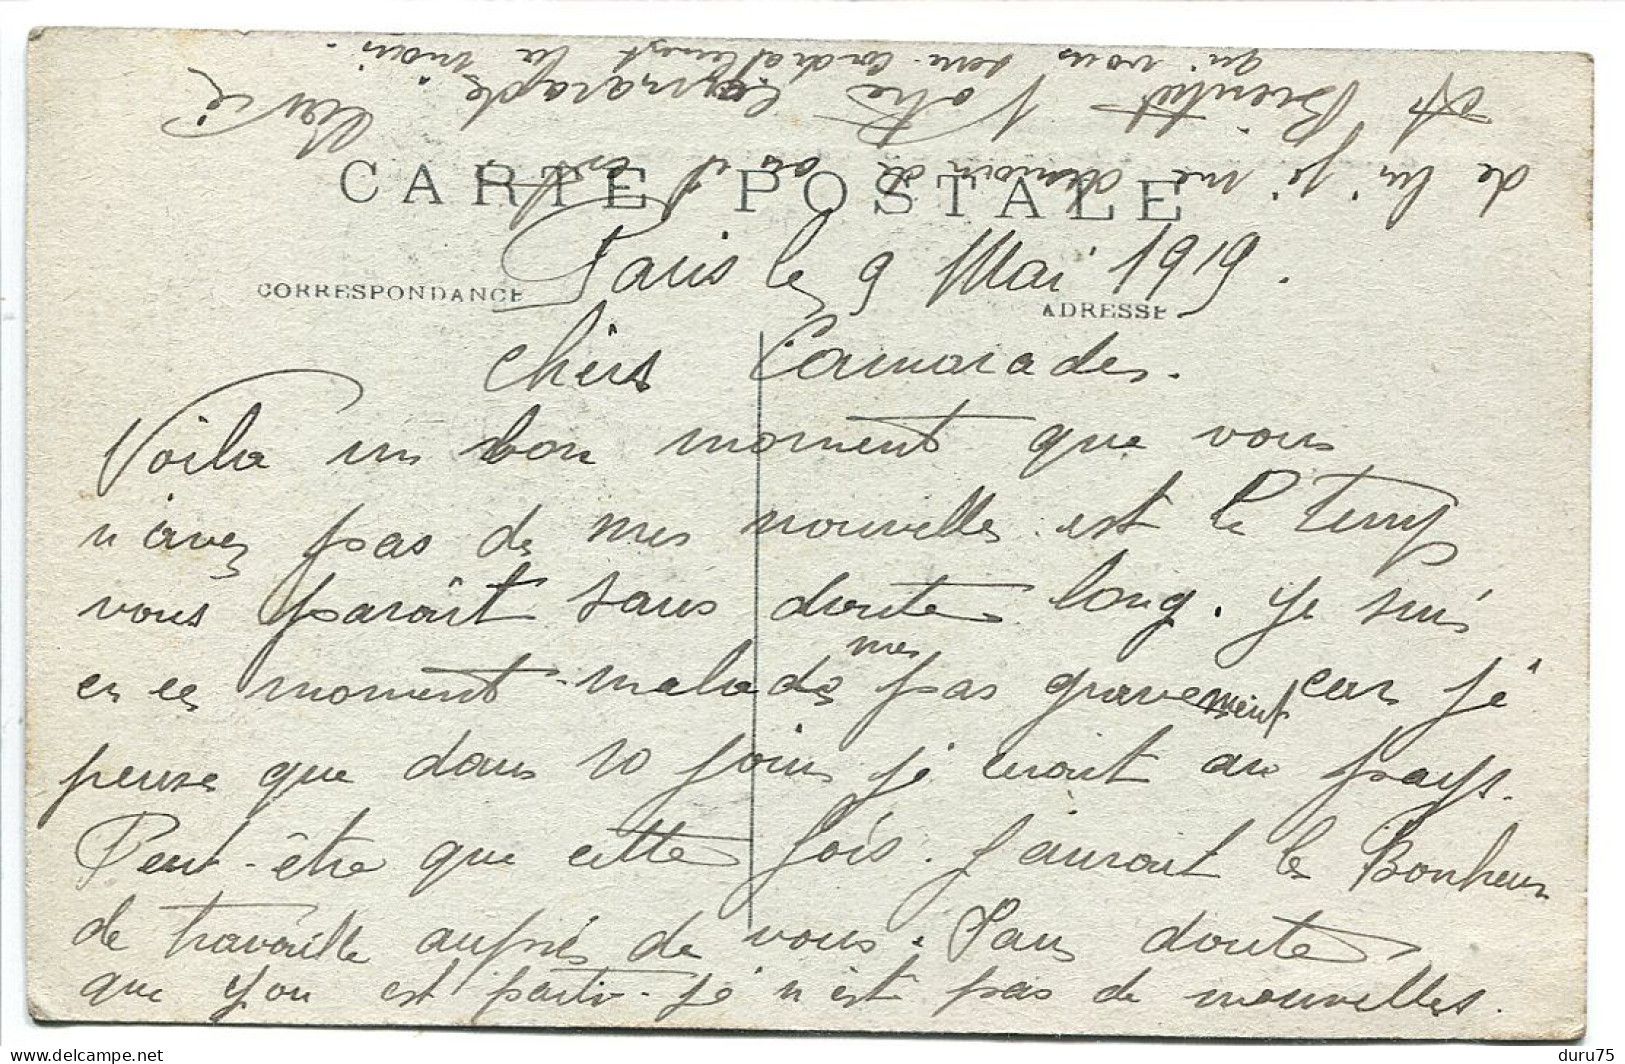 CARTE POSTALE
CORRESPONDANCE
ADRESSE
Paris le 9 Mai 1919.
Chèrs Camarades.
Voila un bon moment que vous
n'avez pas de mes nouvelles est le temps
vous paraît sans doute long. Je suis
en ce moment malade mes pas gravement car je
pense que dans 10 jours je irait au pays.
Peut-être que cette fois. J'aurait le Bonheur
de travaille auprès de vous. Sans doute
que You est partir. Je n'est pas de nouvelles.
de lui je me demande où il est
A Bientôt Votre Camarade
qui vous serre cordialement la main.
delcampe.net
duru75